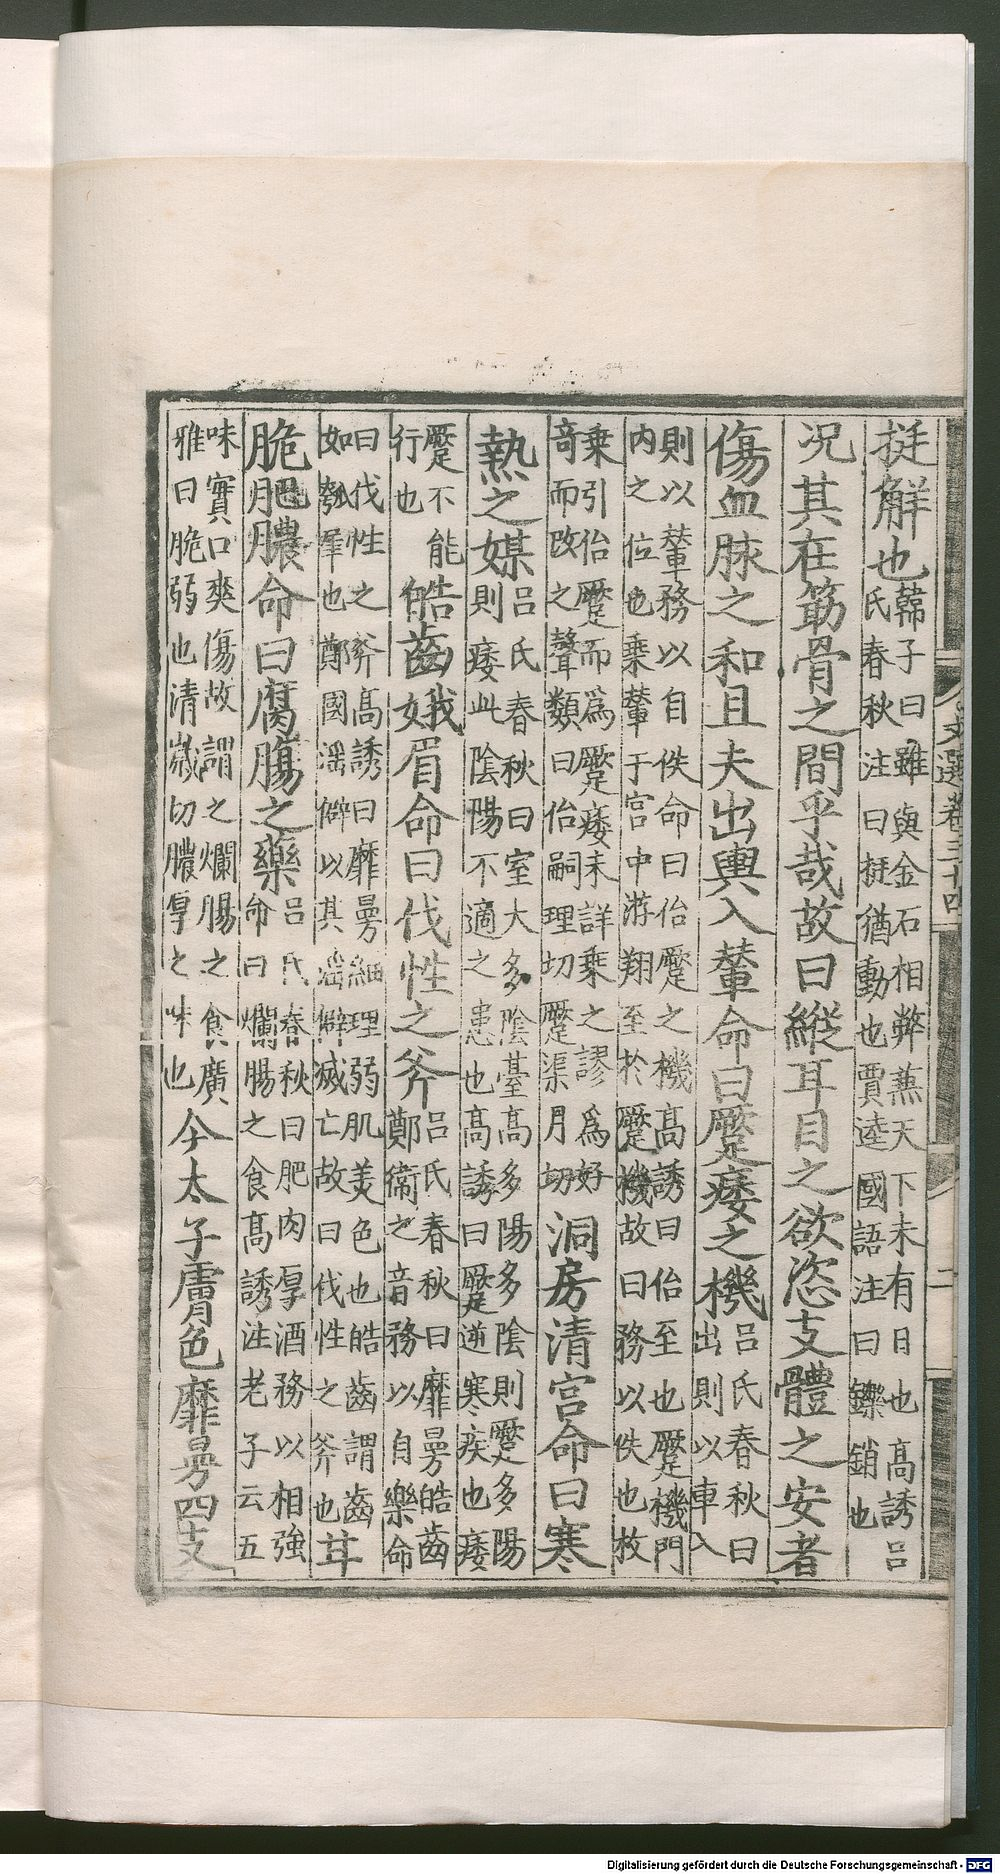 挺解也韓子曰雖與金石相弊蕪天下未有日也高誘呂
氏春秋注曰挺猶動也賈逵國語注曰鑠銷也
况其在筋骨之間乎哉故曰縱耳目之欲恣支體之安者
傷血脉之和且夫出輿入輦命曰蹷痿之機呂氏春秋曰
出則以車入
則以輦務以自佚命曰佁蹷之機高誘曰佁至也蹷機門
內之位也乗輦于宫中游翔至於蹷機故曰務以佚也枚
乗引佁蹷而爲蹷痿未詳乗之謬爲好
竒而改之聲類曰佁嗣理切蹷渠月切
洞房清宫命曰寒
熱之媒
呂氏春秋曰室大多隂臺高多陽多隂則蹷多陽
則痿此隂陽不適之患也高誘曰蹷逆寒疾也痿
蹷不能
行也
皓齒娥眉命曰伐性之斧
呂氏春秋曰靡曼皓齒
鄭衛之音務以自樂命
曰伐性之斧高誘曰靡曼細理弱肌美色也皓齒謂齒
如瓠犀也鄭國淫僻以其淫僻滅亡故曰伐性之斧也
甘
脆肥膿命曰腐腸之藥
呂氏春秋曰肥肉厚酒務以相強
命曰爛腸之食高誘注老子云五
味實口爽傷故謂之爛腸之食廣
雅曰脆弱也清嵗切膿厚之味也
今太子膚色靡曼四支
文選卷三十四
二
Digitalisierung gefördert durch die Deutsche Forschungsgemeinschaft - DFG